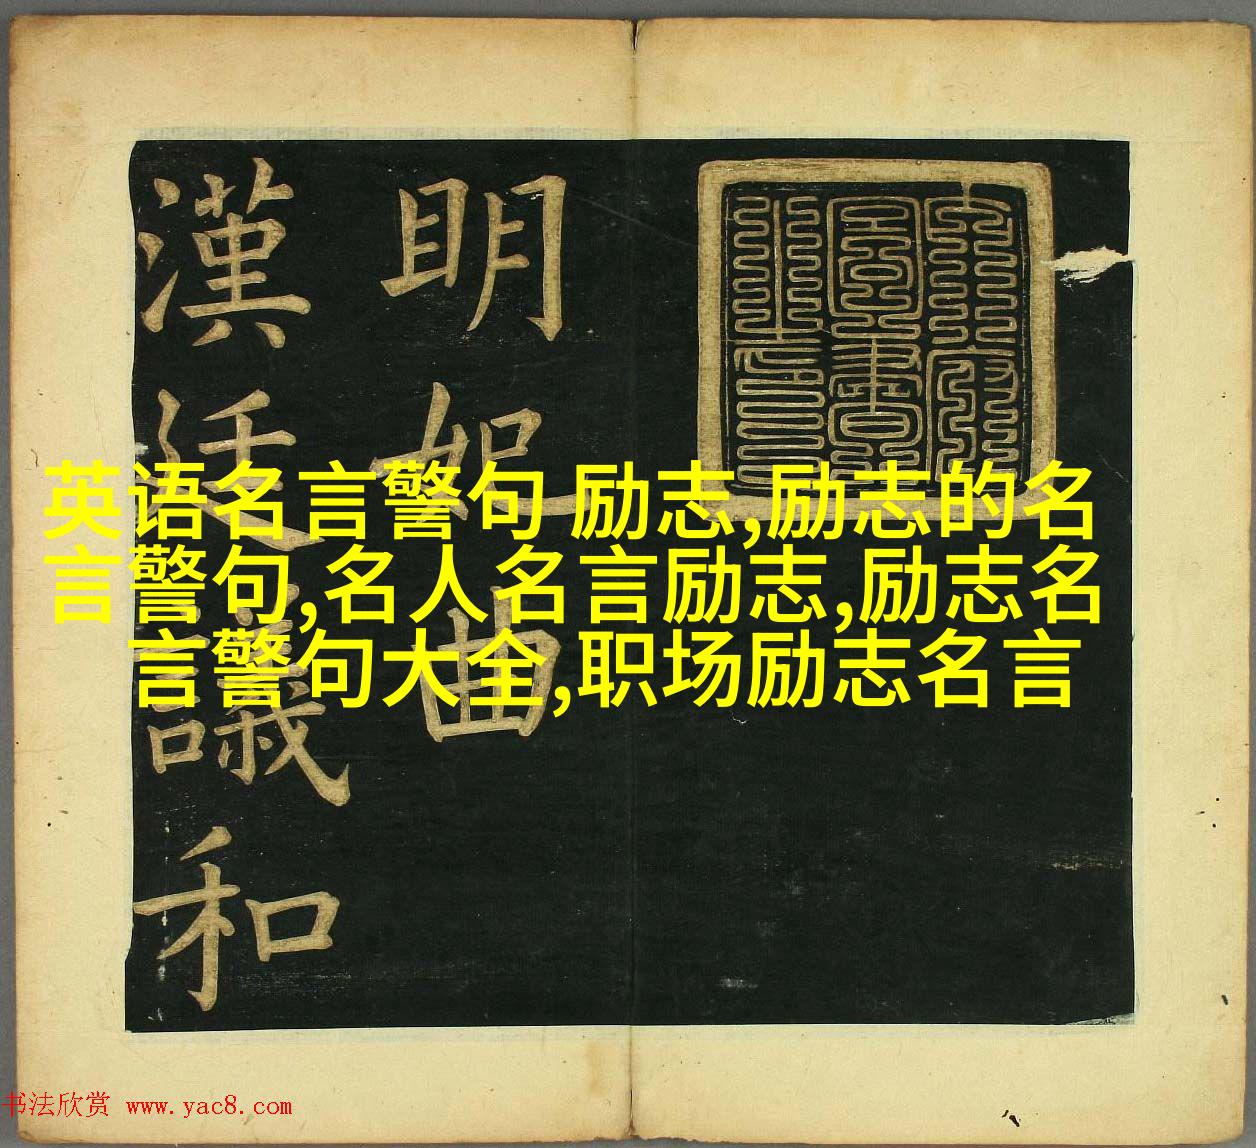 明妃曲
漢廷議和
英语名言警句 励志,励志的名
言警句,名人名言励志,励志名
言警句大全,职场励志名言
书法欣赏 www.yac8.com